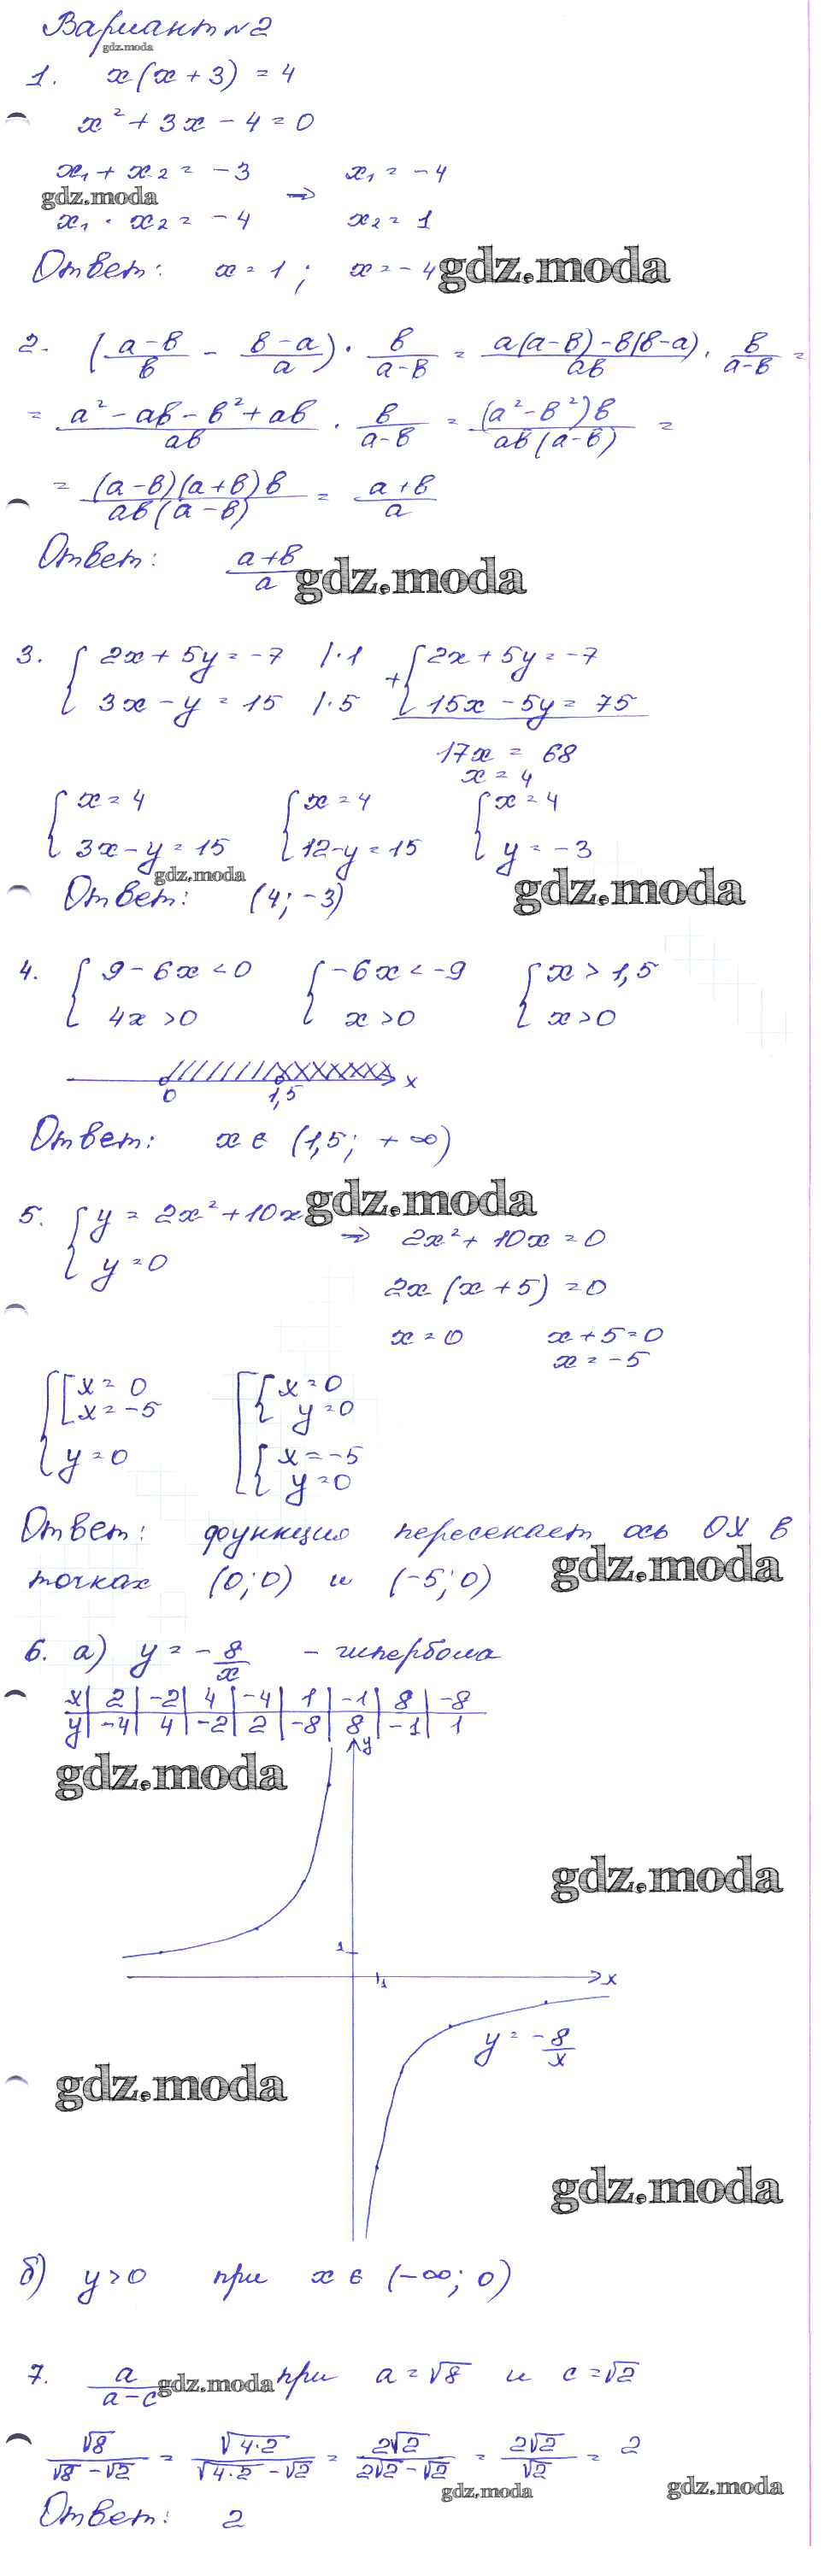 Вариант №2
gdz.moda
1. x(x+3) = 4
x² + 3x - 4 = 0
x₁ + x₂ = -3 x₁ = -4
gdz.moda ⇒
x₁ · x₂ = -4 x₂ = 1
Ответ: x = 1; x = -4 gdz.moda
2. ((a-b)/b - (b-a)/a) · b/(a-b) = (a(a-b)-b(b-a))/(ab) · b/(a-b) =
= (a² - ab - b² + ab)/(ab) · b/(a-b) = ((a²-b²)b)/(ab(a-b)) =
= ((a-b)(a+b)b)/(ab(a-b)) = (a+b)/a
Ответ: (a+b)/a gdz.moda
3. { 2x + 5y = -7 |·1 + { 2x + 5y = -7
3x - y = 15 |·5 15x - 5y = 75
17x = 68
x = 4
{ x = 4 { x = 4 { x = 4
3x - y = 15 12 - y = 15 y = -3
gdz.moda
Ответ: (4; -3) gdz.moda
4. { 9 - 6x < 0 { -6x < -9 { x > 1,5
4x > 0 x > 0 x > 0
0 1,5 x
Ответ: x ∈ (1,5; +∞)
5. { y = 2x² + 10x gdz.moda
y = 0 ⇒ 2x² + 10x = 0
2x (x + 5) = 0
x = 0 x + 5 = 0
x = -5
{ [ x = 0 [ { x = 0
x = -5 y = 0
y = 0 { x = -5
y = 0
Ответ: функция пересекает ось OX в
точках (0; 0) и (-5; 0) gdz.moda
6. а) y = -8/x - гипербола
x | 2 | -2 | 4 | -4 | 1 | -1 | 8 | -8
y | -4 | 4 | -2 | 2 | -8 | 8 | -1 | 1
y
gdz.moda
gdz.moda
1
1 x
y = -8/x
gdz.moda
gdz.moda
б) y > 0 при x ∈ (-∞; 0)
7. a/(a-c) gdz.moda при a = √8 и c = √2
√8/(√8-√2) = √(4·2)/(√(4·2)-√2) = 2√2/(2√2-√2) = 2√2/√2 = 2
gdz.moda gdz.moda
Ответ: 2